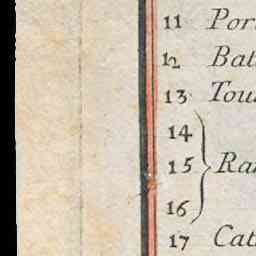 11 Por
12 Bat
13 Tou
14
15 Ra
16
17 Cat